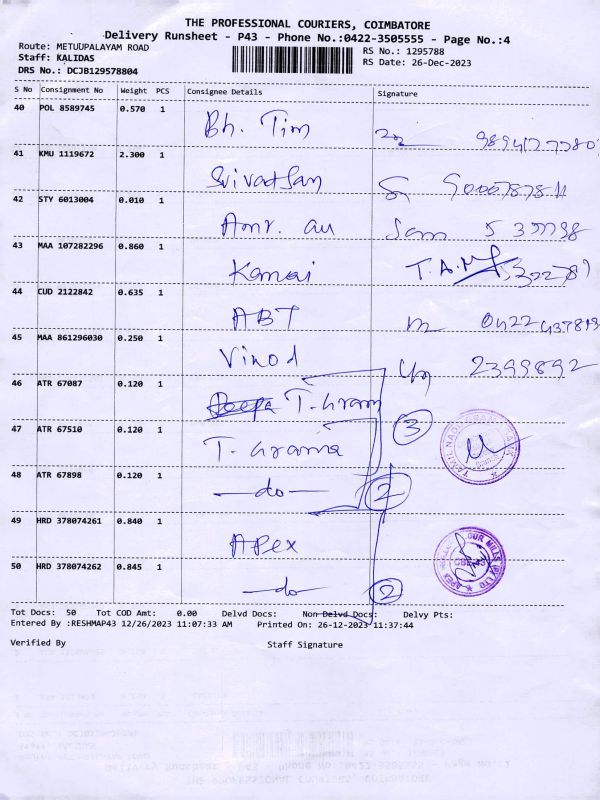 THE PROFESSIONAL COURIERS, COIMBATORE
Delivery Runsheet - P43 - Phone No.:0422-3505555 - Page No.:4
Route: METUUPALAYAM ROAD
RS No.: 1295788
Staff: KALIDAS
RS Date: 26-Dec-2023
DRS No.: DCJB129578804
S No Consignment No Weight PCS Consignee Details Signature
40 POL 8589745 0.570 1
Bh. Tim
41 KMU 1119672 2.300 1
Srivatsan 9000787811
42 STY 6013004 0.010 1
Amr.
43 MAA 107282296 0.860 1
Kamai T.A.M
44 CUD 2122842 0.635 1
ABT 0422
45 MAA 861296030 0.250 1
Vinod 2399892
46 ATR 67087 0.120 1
T. Gram
47 ATR 67510 0.120 1 3
T. Grama
48 ATR 67898 0.120 1
-do- 2
49 HRD 378074261 0.840 1
APex
50 HRD 378074262 0.845 1
-do- 2
Tot Docs: 50 Tot COD Amt: 0.00 Delvd Docs: Non Delvd Docs: Delvy Pts:
Entered By :RESHMAP43 12/26/2023 11:07:33 AM Printed On: 26-12-2023 11:37:44
Verified By Staff Signature